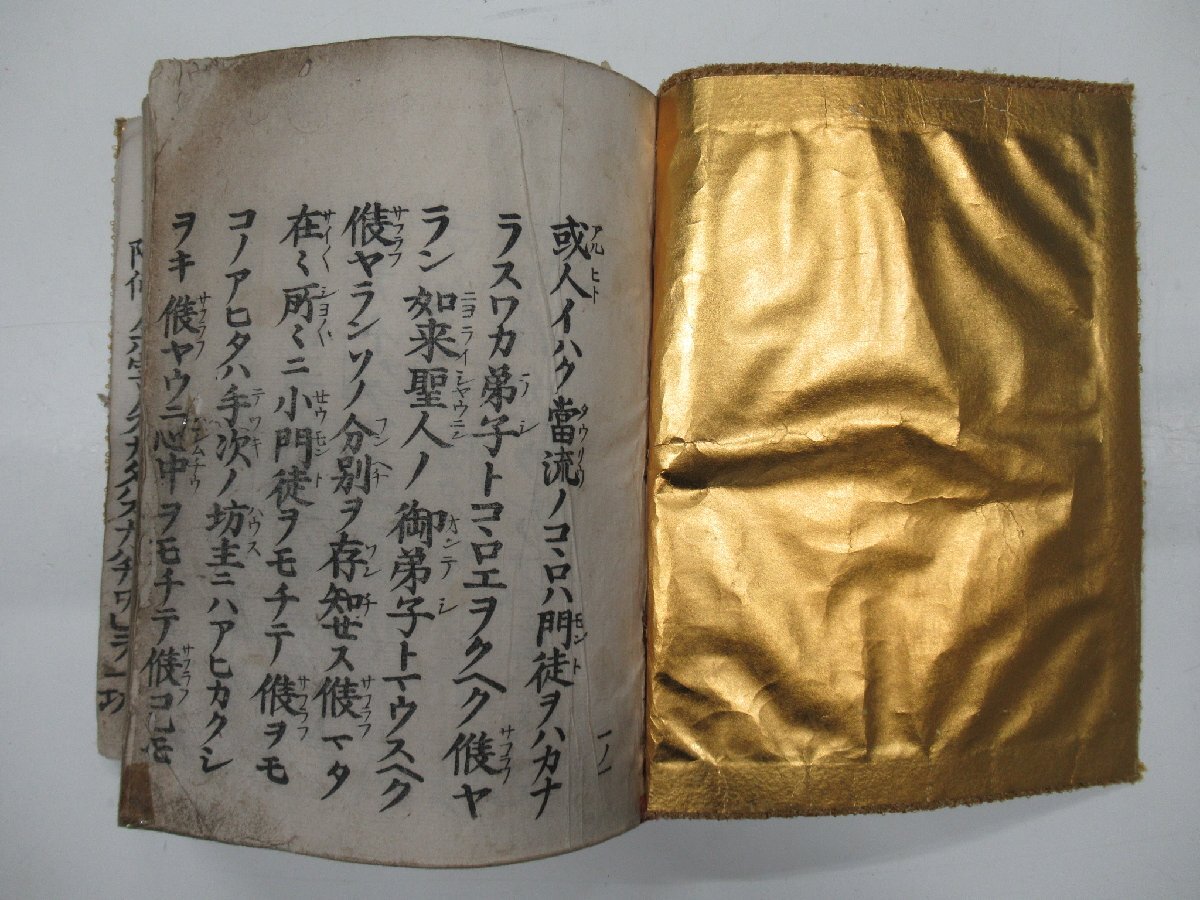 或人イハク當流ノコヽロハ門徒ヲハカナ
ラスワカ弟子トコヽロエヲクヘク候ヤ
ラン如来聖人ノ御弟子トマウスヘク
候ヤランソノ分別ヲ存知せス候マタ
在〻所〻ニ小門徒ヲモチテ候ヲモ
コノアヒタハ手次ノ坊主ニハアヒカクシ
ヲキ候ヤウニ心中ヲモチテ候コレモ